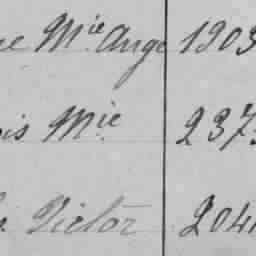 Mie Ange 1903
Mie 237
Victor 204